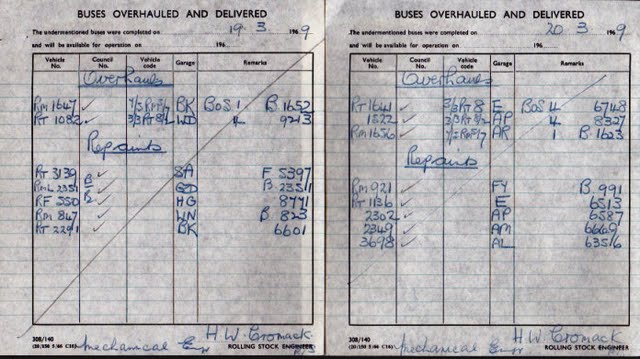 BUSES OVERHAULED AND DELIVERED
The undermentioned buses were completed on 19 3 1969
and will be available for operation on 196
Vehicle No. Council No. Vehicle code Garage Remarks
Overhauls
RM 1647 ✓ BK BOS 1 B 1652
RT 1082 ✓ WD 4 9213
Repaints
RT 3139 ✓ SA F 5397
RML 2351 B ✓ GD B 2351/1
RF 550 B ✓ HG 8771
RM 847 ✓ WN B 823
RT 2291 ✓ BK 6601
308/140
Mechanical Engr
H.W. Cromack
ROLLING STOCK ENGINEER
BUSES OVERHAULED AND DELIVERED
The undermentioned buses were completed on 20 3 1969
and will be available for operation on 196
Vehicle No. Council No. Vehicle code Garage Remarks
Overhauls
RT 1641 ✓ 3/3 RT 8 E BOS 4 6748
1822 ✓ 3/3 RT 8/2 AP 4 8327
RM 1656 ✓ AR 1 B 1623
Repaints
RM 921 ✓ FY B 991
RT 1136 ✓ E 6513
2302 ✓ AP 6587
2349 ✓ AM 6669
3698 ✓ AL 6351/6
308/140
Mechanical Engr
H.W. Cromack
ROLLING STOCK ENGINEER